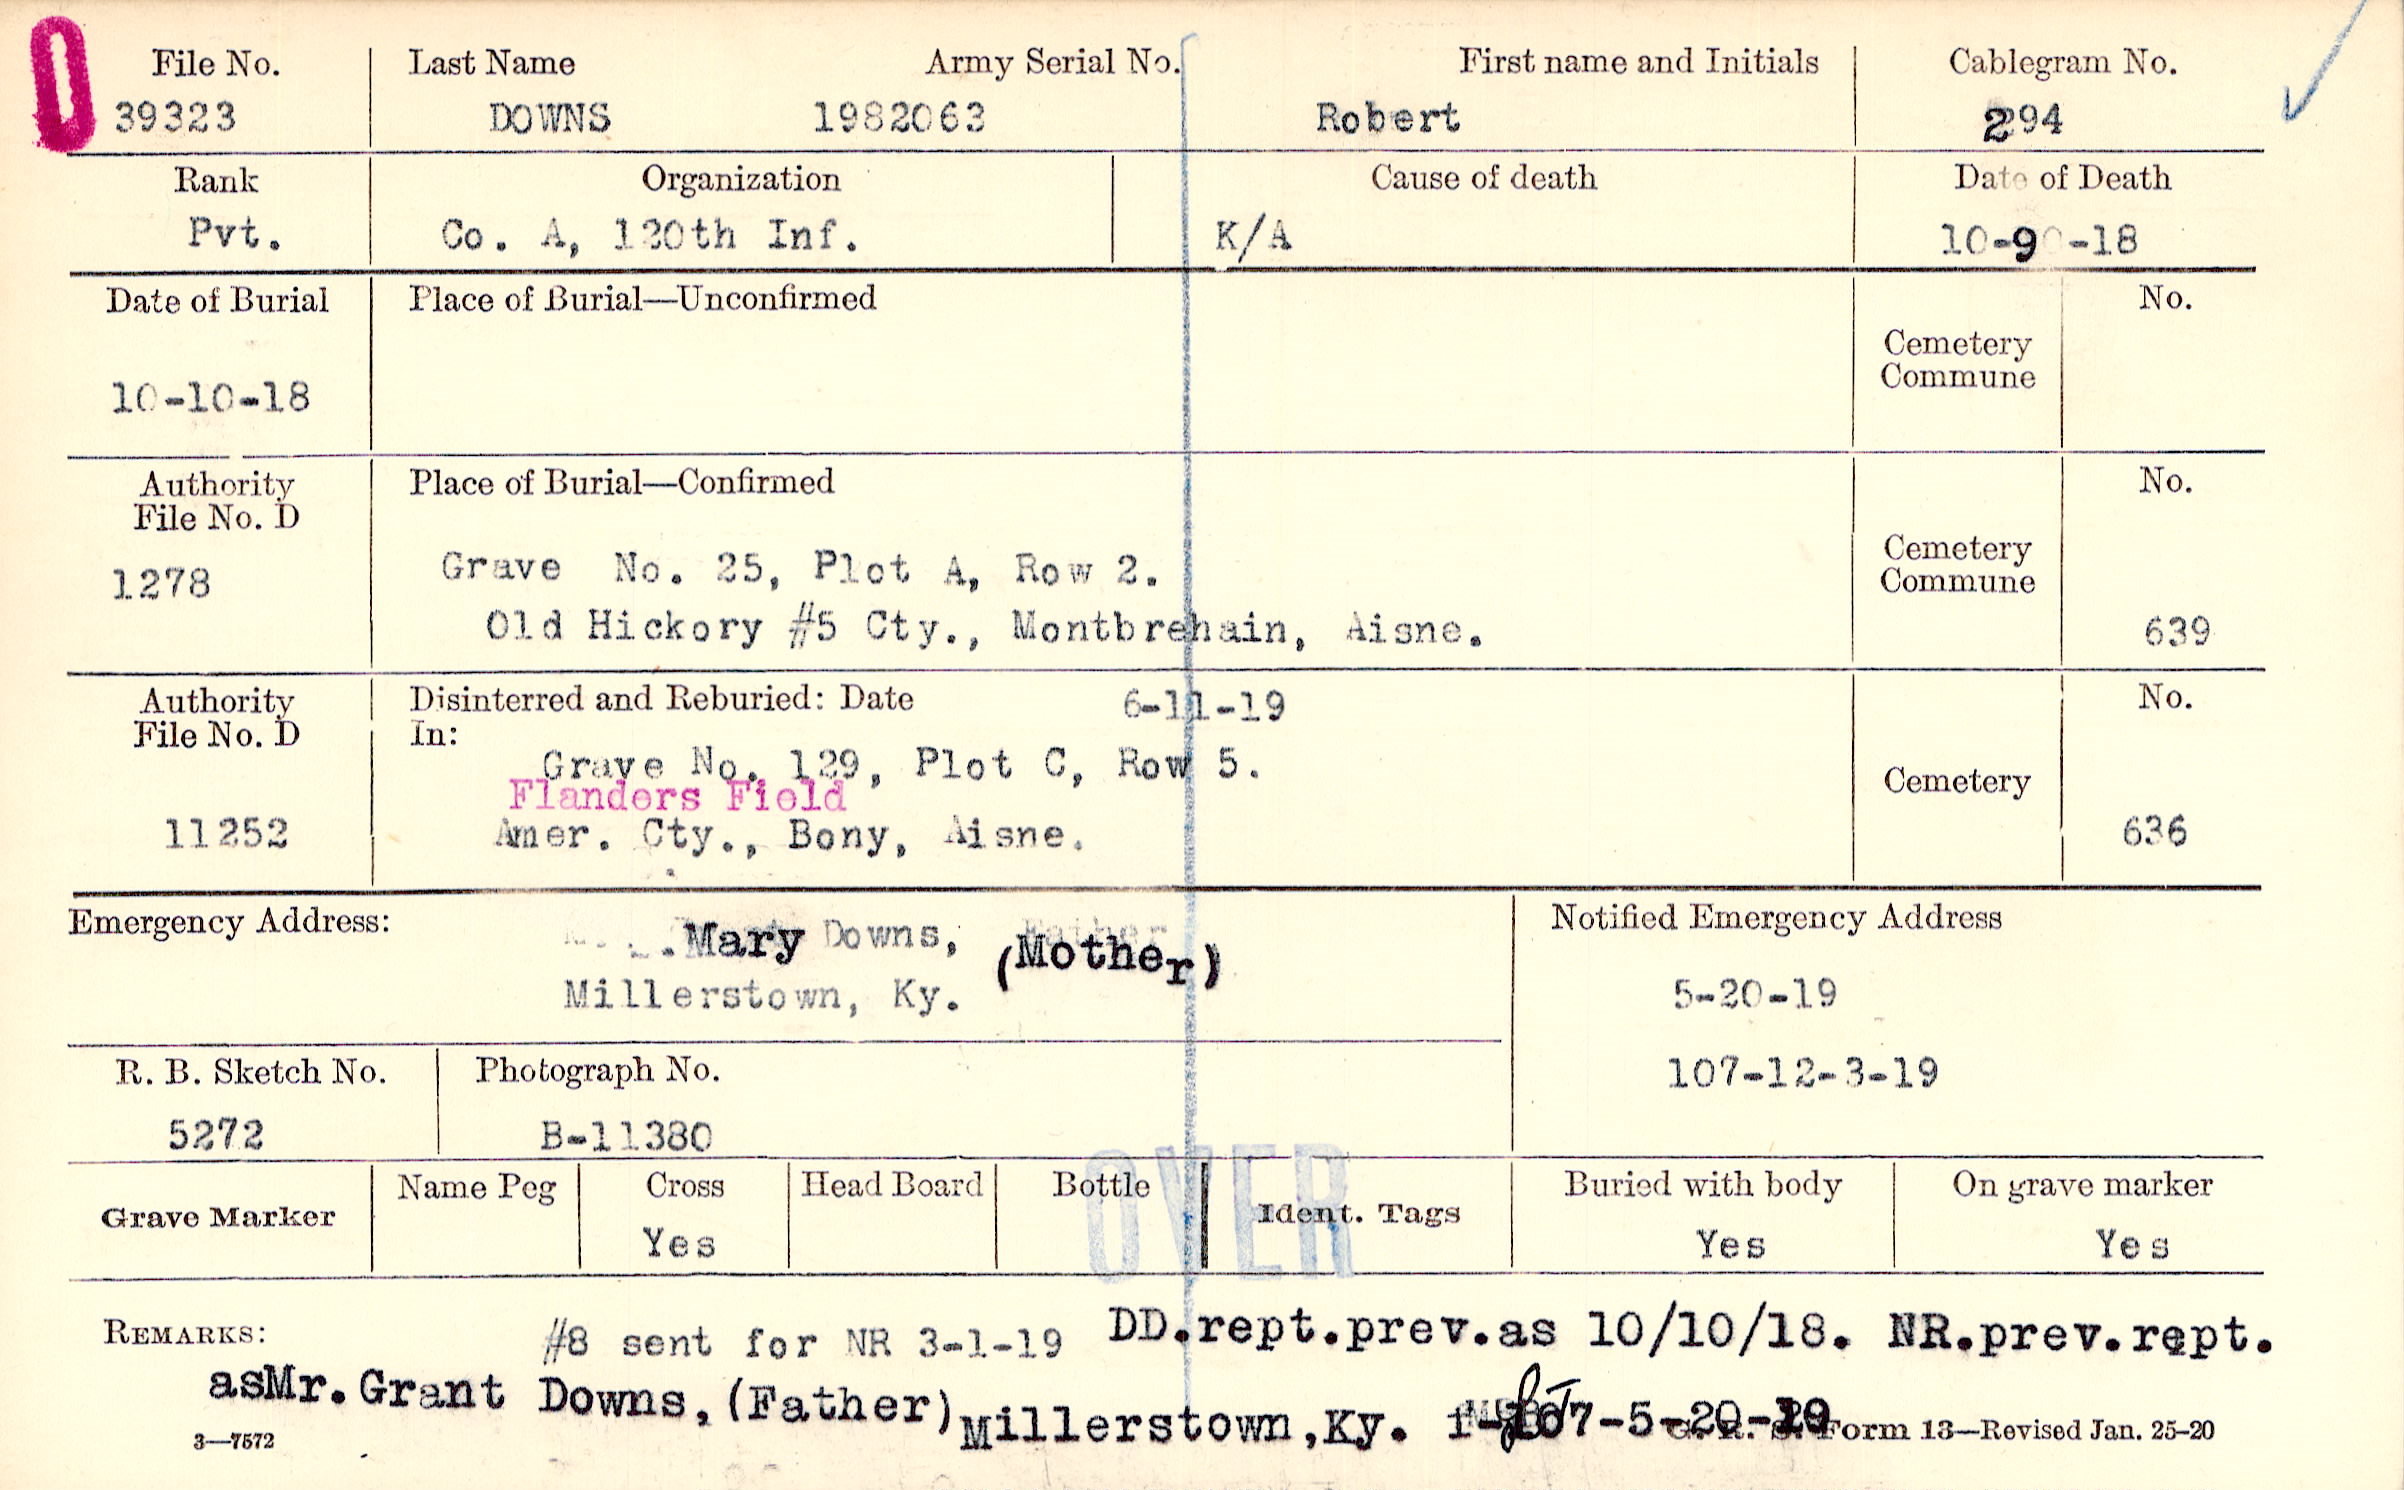 File No. Last Name Army Serial No. First name and Initials Cablegram No.
39323 DOWNS 1982063 Robert 294
Rank Organization Cause of death Date of Death
Pvt. Co. A, 120th Inf. K/A 10-9-18
Date of Burial Place of Burial—Unconfirmed No.
Cemetery
Commune
10-10-18
Authority Place of Burial—Confirmed No.
File No. D
Cemetery
Commune
1278 Grave No. 25, Plot A, Row 2.
Old Hickory #5 Cty., Montbrehain, Aisne. 639
Authority Disinterred and Reburied: Date 6-11-19 No.
File No. D In:
Grave No. 129, Plot C, Row 5.
Cemetery
Flanders Field
11252 Amer. Cty., Bony, Aisne. 636
Emergency Address: Mary Downs, (Mother) Notified Emergency Address
Millerstown, Ky. 5-20-19
107-12-3-19
R. B. Sketch No. Photograph No.
5272 B-11380
OVER
Grave Marker Name Peg Cross Head Board Bottle Ident. Tags Buried with body On grave marker
Yes Yes Yes
REMARKS: #8 sent for NR 3-1-19 DD.rept.prev.as 10/10/18. NR.prev.rept.
asMr.Grant Downs,(Father)Millerstown,Ky. 1-107-5-20-19
3—7572 Form 13—Revised Jan. 25-20